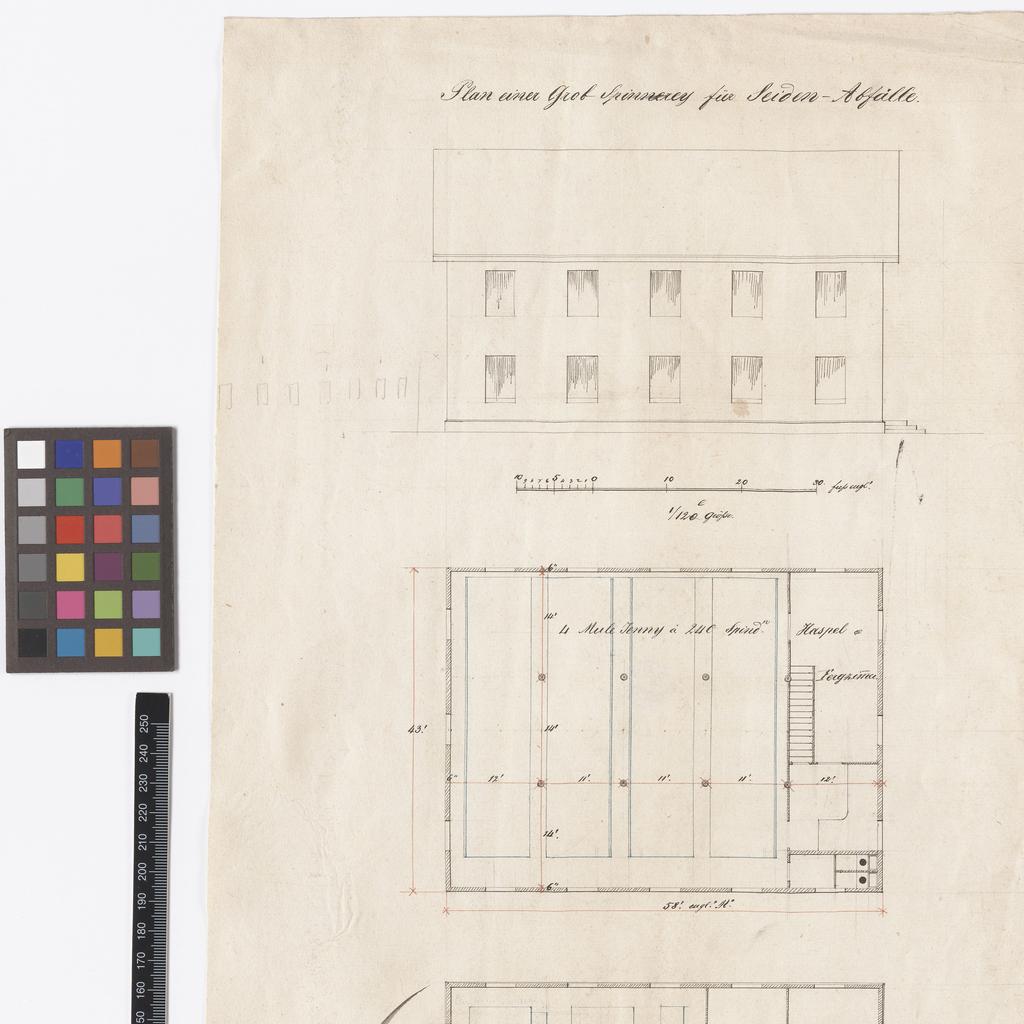 Plan einer Grob Spinnerey für Seiden-Abfälle.
10 5 0 10 20 30 fuss engl.
1/120 Größe.
6"
14'
4 Mule Jenny à 240 Spind.n
Haspel &
43.'
14'
6" 12' 11'. 11'. 11'. 12'.
14'.
6"
58'. engl. M.
250
240
230
220
210
200
190
180
170
160
50